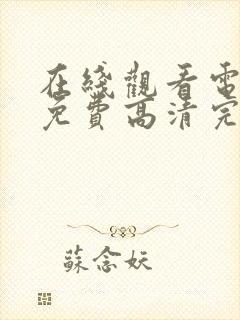 在綫觀看電
免費高清完
蘇念妖